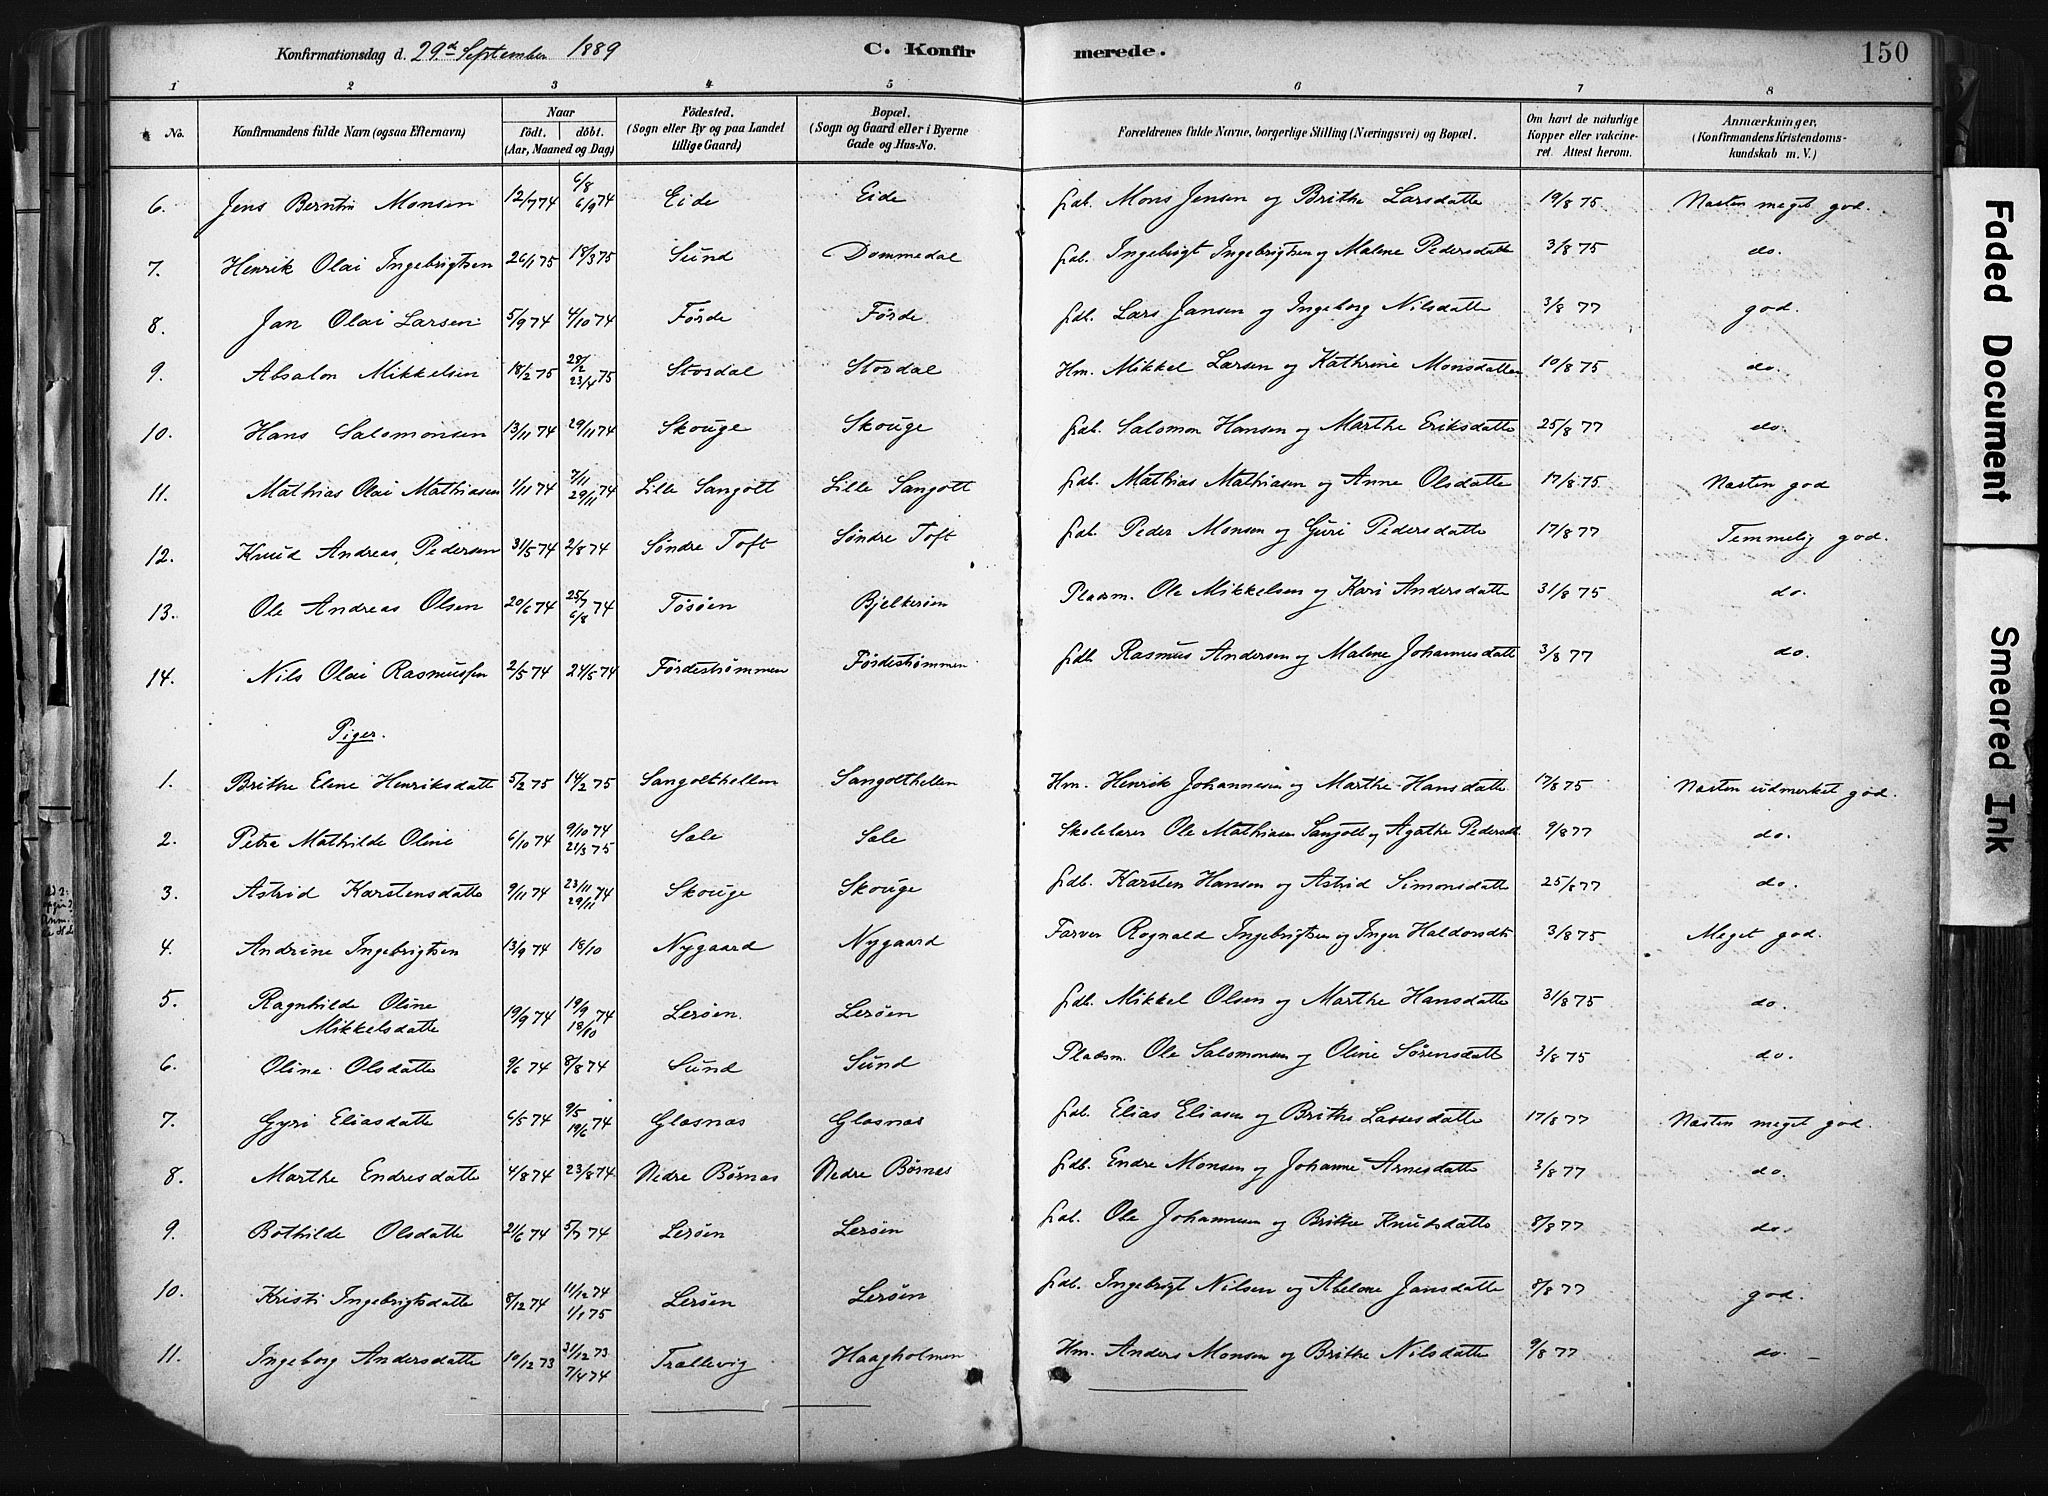 Konfirmationsdag d. 29.d September 1889 C. Konfirmerede. 150
1 2 3 4 5 6 7 8
No. Konfirmandens fulde Navn (ogsaa Efternavn) Naar født. døbt. (Aar, Maaned og Dag) Fødested. (Sogn eller By og paa Landet tillige Gaard) Bopæl. (Sogn og Gaard eller i Byerne Gade og Hus-No. Forældrenes fulde Navne, borgerlige Stilling (Næringsvei) og Bopæl. Om havt de naturlige Kopper eller vakcineret. Attest herom. Anmærkninger, (Konfirmandens Kristendomskundskab m. V.)
6. Jens Berntin Monsen 12/7 74 6/8 6/9 74 Eide Eide Gdb. Mons Jensen og Brithe Larsdatte 19/8 75 Næsten meget god.
7. Henrik Olai Ingebrigtsen 26/1 75 18/3 75 Sund Dommedal Gdb. Ingebrigt Ingebrigtsen og Malene Pedersdatte 3/8 75 do.
8. Jan Olai Larsen 5/9 74 4/10 74 Førde Førde Gdb. Lars Jansen og Ingeborg Nilsdatte 3/8 77 god.
9. Absalon Mikkelsen 18/2 75 28/2 23/4 75 Stordal Stordal Hm. Mikkel Larsen og Kathrine Monsdatter 10/8 75 do.
10. Hans Salomonsen 13/11 74 29/11 74 Skouge Skouge Gdb. Salomon Hansen og Marthe Eriksdatte 25/8 77 do.
11. Mathias Olai Mathiasen 1/11 74 7/11 29/11 74 Lille Sangolt Lille Sangolt Gdb. Mathias Mathiasen og Anne Olsdatte 17/8 75 Næsten god
12. Knud Andreas Pedersen 31/5 74 2/8 74 Søndre Toft Søndre Toft Gdb. Peder Monsen og Guri Pedersdatte 17/8 77 Temmelig god.
13. Ole Andreas Olsen 20/6 74 25/7 6/8 74 Tøsøen Bjelkerøen Pladsm. Ole Mikkelsen og Kari Andersdatte 31/8 75 do.
14. Nils Olai Rasmussen 2/5 74 24/5 74 Førdestrømmen Førdestrømmen Gdb. Rasmus Andersen og Malene Johannesdatte 3/8 77 do.
Piger.
1. Brithe Eline Henriksdatte 5/2 75 14/2 75 Sangolthellen Sangolthellen Hm. Henrik Johannesen og Marthe Hansdatte 17/8 75 Næsten udmerket god.
2. Petra Mathilde Oline 6/10 74 9/10 74 21/3 75 Sale Sale Skolelærer Ole Mathiasen Sangolt og Agathe Pedersdt. 9/8 77 do.
3. Astrid Karstensdatte 9/11 74 23/11 29/11 74 Skouge Skouge Gdb. Karsten Hansen og Astrid Simonsdatte 25/8 77 do.
4. Andrine Ingebrigtsen 13/9 74 18/10 Nygaard Nygaard Farver Rognald Ingebrigtsen og Inger Haldorsdtr 3/8 75 Meget god.
5. Ragnhilde Oline Mikkelsdatte 19/9 74 19/9 18/10 74 Lerøen. Lerøen Gdb. Mikkel Olsen og Marthe Hansdatte 31/8 75 do.
6. Oline Olsdatte 9/6 74 8/8 74 Sund Sund Pladsm. Ole Salomonsen og Oline Sørensdatt 3/8 75 do.
7. Gyri Eliasdatte 6/5 74 9/5 19/6 74 Glæsnæs Glæsnæs Gdb. Elias Eliasen og Brithe Lassesdatte 17/8 77 Næsten meget god.
8. Marthe Endresdatte 4/8 74 23/8 74 Nedre Børnæs Nedre Børnæs Gdb. Endre Monsen og Johanne Arnesdatte 3/8 77 do.
9. Bothilde Olsdatte 21/6 74 5/7 74 Lerøen Lerøen Gdb. Ole Johannesen og Brithe Knudsdatte 8/8 77 do.
10. Kristi Ingebrigtsdatte 8/12 74 11/12 74 1/1 75 Lerøen Lerøen Gdb. Ingebrigt Nilsen og Abelone Jansdatte 8/8 77 god.
11. Ingeborg Andersdatte 10/12 73 31/12 73 7/4 74 Trællevig Haagholmen Hm. Anders Monsen og Brithe Nilsdatte 9/8 77 do.
Faded Document
Smeared Ink